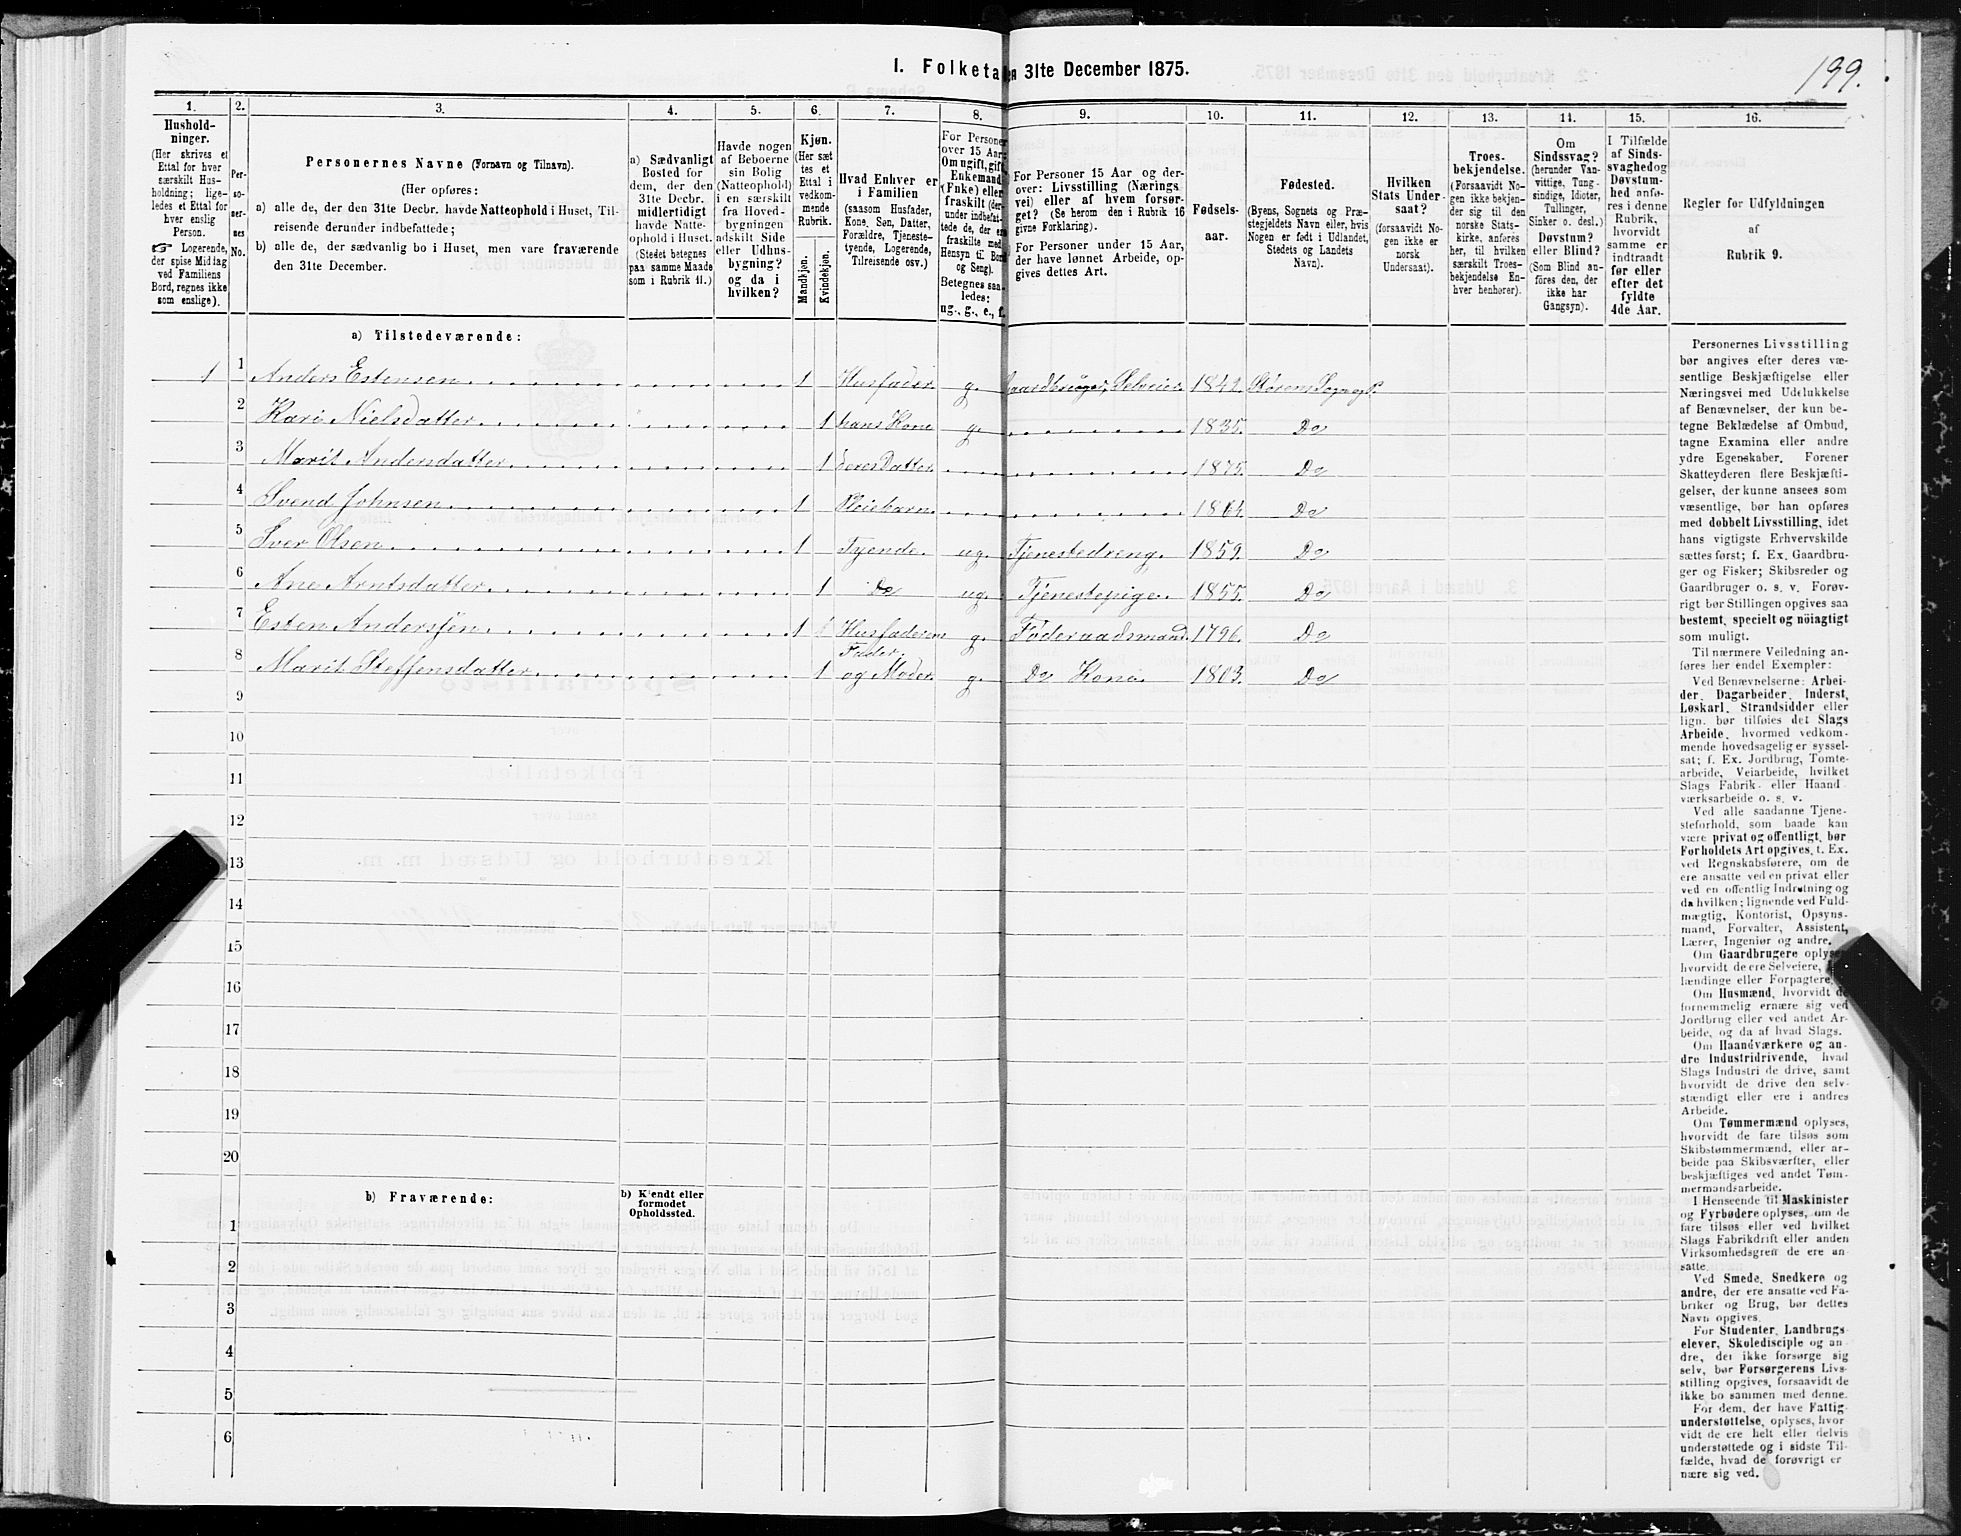 199.
I. Folketa en 31te December 1875.
1. 2. 3. 4. 5. 6. 7. 8. 9. 10. 11. 12. 13. 14. 15. 16.
Hushold-
ninger.
(Her skrives et
Ettal for hver
særskilt Hus-
holdning; lige-
ledes et Ettal for
hver enslig
Person.
☞ Logerende,
der spise Middag
ved Familiens
Bord, regnes ikke
som enslige).
Per-
so-
ner-
nes
No.
Personernes Navne (Fornavn og Tilnavn).
(Her opføres:
a) alle de, der den 31te Decbr. havde Natteophold i Huset, Til-
reisende derunder indbefattede;
b) alle de, der sædvanlig bo i Huset, men vare fraværende
den 31te December.
a) Sædvanligt
Bosted for
dem, der den
31te Decbr.
midlertidigt
havde Natte-
ophold i Huset.
(Stedet betegnes
paa samme Maade
som i Rubrik 11.)
Havde nogen
af Beboerne
sin Bolig
(Natteophold)
i en særskilt
fra Hoved-
bygningen
adskilt Side
eller Udhus-
bygning?
og da i
hvilken?
Kjøn.
(Her sæt
tes et
Ettal i
vedkom-
mende
Rubrik.
Mandkjøn.
Kvindekjøn.
Hvad Enhver er
i Familien
(saasom Husfader,
Kone, Søn, Datter,
Forældre, Tjeneste-
tyende, Logerende,
Tilreisende osv.)
For Persone
over 15 Aar:
Om ugift, gift
Enkemand
(Enke) eller
fraskilt (der-
under indbefat-
tede de, der er
fraskilte med
Hensyn til Bord
og Seng).
Betegnes saa-
ledes:
ug., g., e., f.
For Personer 15 Aar og der-
over: Livsstilling (Nærings-
vei) eller af hvem forsør-
get? (Se herom den i Rubrik 16
givne Forklaring).
For Personer under 15 Aar,
der have lønnet Arbeide, op-
gives dettes Art.
Fødsels-
aar.
Fødested.
(Byens, Sognets og Præ-
stegjeldets Navn eller, hvis
Nogen er født i Udlandet,
Stedets og Landets
Navn).
Hvilken
Stats Under-
saat?
(forsaavidt No-
gen ikke er
norsk
Undersaat).
Troes-
bekjendelse.
(Forsaavidt No-
gen ikke bekjen-
der sig til den
norske Stats-
kirke, anføres
her, til hvilken
særskilt Troes-
bekjendelse En-
hver henhører).
Om
Sindssvag?
(herunder Van-
vittige, Tung-
sindige, Idioter,
Tullinger,
Sinker o. desl.)
Døvstum?
eller Blind?
(Som Blind an-
føres den, der
ikke har
Gangsyn).
I Tilfælde
af Sinds-
svaghed og
Døvstum-
hed anfø-
res i denne
Rubrik,
hvorvidt
samme er
indtraadt
før eller
efter det
fyldte
4de Aar.
Regler for Udfyldningen
af
Rubrik 9.
a) Tilstedeværende:
1 1 Anders Estensen 1 Husfader g. Gaardbruger, Selveier 1842 Størens Sogn og P.
2 Kari Nielsdatter 1 hans Kone g. 1835. Do
3 Marit Andersdatter 1 deres Datter 1875. Do
4 Svend Johnsen 1 Pleiebarn 1864. Do
5 Iver Olsen 1 Tyende ug. Tjenestedreng 1859. Do
6 Ane Arntsdatter 1 Do ug. Tjenestepige 1855. Do
7 Esten Andersen 1 Husfaderens Fader g. Føderaadsmand 1796. Do
8 Marit Steffensdatter 1 og Moder g. Do Kone 1803. Do
9
10
11
12
13
14
15
16
17
18
19
20
b) Fraværende:
b) Kjendt eller
formodet
Opholdssted.
1
2
3
4
5
6
Personernes Livsstilling
bør angives efter deres væ-
sentlige Beskjæftigelse eller
Næringsvei med Udelukkelse
af Benævnelser, der kun be-
tegne Beklædelse af Ombud,
tagne Examina eller andre
ydre Egenskaber. Forener
Skatteyderen flere Beskjæfti-
gelser, der kunne ansees som
væsentlige, bør han opføres
med dobbelt Livsstilling, idet
hans vigtigste Erhvervskilde
sættes først; f. Ex. Gaardbru-
ger og Fisker; Skibsreder og
Gaardbruger o. s. v. Forøv-
rigt bør Stillingen opgives saa
bestemt, specielt og nöiagtigt
som muligt.
Til nærmere Veiledning an-
føres her endel Exempler:
Ved Benævnelserne: Arbei-
der, Dagarbeider, Inderst,
Løskarl, Strandsidder eller
lign. bør tilføies det Slags
Arbeide, hvormed vedkom-
mende hovedsagelig er syssel-
sat; f. Ex. Jordbrug, Tomte-
arbeide, Veiarbeide, hvilket
Slags Fabrik- eller Haand
værksarbeide o. s. v.
Ved alle saadanne Tjene-
steforhold, som baade kan
være privat og offentligt, bør
Forholdets Art opgives, t. Ex.
ved Regnskabsførere, om de
ere ansatte ved en privat eller
ved en offentlig Indretning og
da hvilken; lignende ved Fuld-
mægtig, Kontorist, Opsyns-
mand, Forvalter, Assistent,
Lærer, Ingeniør og andre.
Om Gaardbrugere oplyses
hvorvidt de ere Selveiere,
lændinge eller Forpagtere.
Om Husmænd, hvorvidt de
fornemmelig ernære sig ved
Jordbrug eller ved andet Ar-
beide, og da af hvad Slags.
Om Haandværkere og an-
dre Industridrivende, hvad
Slags Industri de drive, samt
hvorvidt de drive den selv-
stændigt eller ere i andres
Arbeide.
Om Tømmermænd oplyses,
hvorvidt de fare tilsøs som
Skibstømmermænd, eller ar-
beide paa Skibsværfter, eller
beskjæftiges ved andet Tøm-
mermandsarbeide.
I Henseende til Maskinister
og Fyrbødere oplyses, om de
fare tilsøs eller ved hvilket
Slags Fabrikdrift eller anden
Virksomhedsgren de ere an-
satte.
Ved Smede, Snedkere og
andre, der ere ansatte ved Fa-
briker og Brug, bør dettes
Navn opgives.
For Studenter, Landbrugs-
elever, Skoledisciple og an-
dre, der ikke forsørge sig
selv, bør Forsørgerens Livs-
stilling opgives, forsaavidt de
ikke bo sammen med denne.
For dem, der have Fattig-
understøttelse, oplyses, hvor
vidt de ere helt eller delvis
understøttede og i sidste Til-
fælde, hvad de forøvrigt er
nære sig ved.